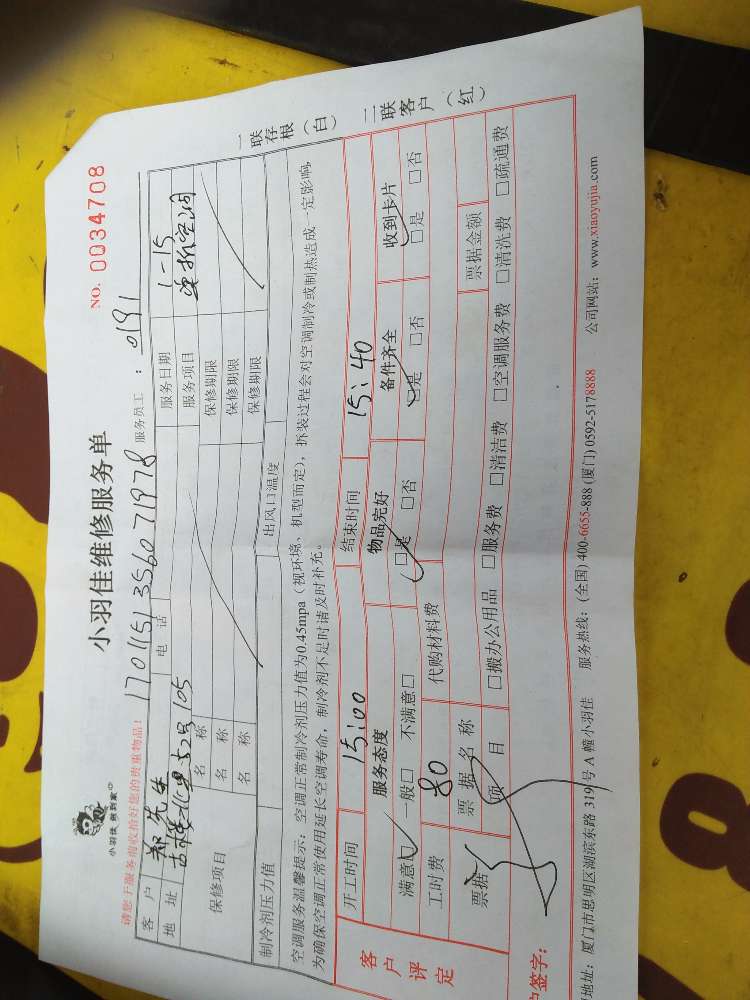 小羽佳维修服务单
NO. 0034708
小羽佳 做到家
请您于服务前收拾好您的贵重物品!
服务员工 : 0191
客户 郑先生 电话 服务日期 1-15
地址 古楼北里52号105 服务项目
保修项目
名称 保修期限
名称 保修期限
名称 保修期限
制冷剂压力值 出风口温度
空调服务温馨提示：空调正常制冷剂压力值为0.45mpa（视环境、机型而定），拆装过程会对空调制冷或制热造成一定影响，
为确保空调正常使用延长空调寿命，制冷剂不足时请及时补充。
一联存根（白）
二联客户（红）
开工时间 15:00 结束时间 15:40
客户评定
服务态度 物品完好 备件齐全 收到卡片
满意□ 一般□ 不满意□ □是 □否 □是 □否 □是 □否
工时费 80 代购材料费
票据 票据名称 票据金额
项目 □搬办公用品 □服务费 □清洁费 □空调服务费 □清洗费 □疏通费
户签字：
地址：厦门市思明区湖滨东路319号A幢小羽佳 服务热线：(全国) 400-6655-888 (厦门) 0592-5178888 公司网站：www.xiaoyujia.com